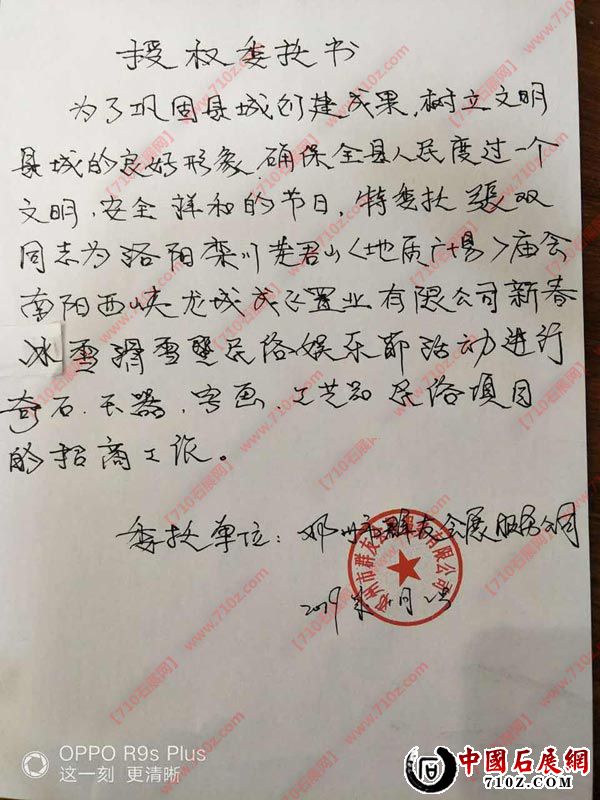 授权委托书
为了巩固县城创建成果,树立文明
县城的良好形象.确保全县人民度过一个
文明.安全祥和的节日,特委托張双
同志为洛阳栾川老君山〈地质广场〉庙会
南阳西峡龙城 置业有限公司新春
冰雪滑雪暨民俗娱乐節活动进行
奇石.玉器.字画.工艺品民俗項目
的招商工作。
委托单位:邓州市群友会展服务公司
州市群友 有限公司
2019年 月 号
OPPO R9s Plus
这一刻 更清晰
中國石展網
710z.com
【710石展网】
www.710z.com